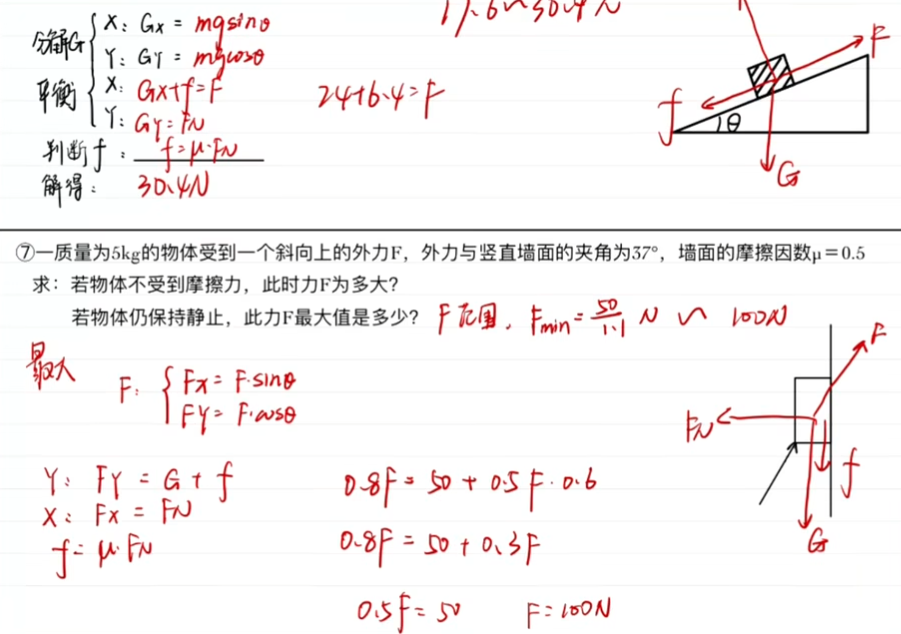 分解G { X: Gx = mgsinθ
Y: GY = mgcosθ
平衡 { X: Gx+f=F
Y: GY=FN
判断f: f=μ·FN
解得: 30.4N
24+6.4=F
F
f
θ
G
⑦一质量为5kg的物体受到一个斜向上的外力F，外力与竖直墙面的夹角为37°，墙面的摩擦因数μ＝0.5
求：若物体不受到摩擦力，此时力F为多大？
若物体仍保持静止，此力F最大值是多少？ F范围, Fmin=50/1.1 N ~ 100N
最大
F: { Fx = F·sinθ
FY = F·cosθ
Y: FY = G + f
X: Fx = FN
f=μ·FN
0.8F = 50 + 0.5F·0.6
0.8F = 50 + 0.3F
0.5F = 50 F=100N
F
FN
f
G